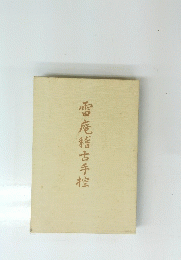 雷庵稽古手控